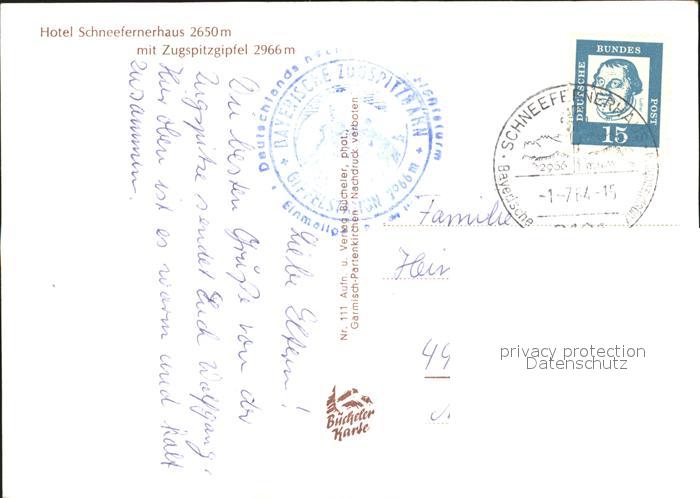 Hotel Schneefernerhaus 2650 m
mit Zugspitzgipfel 2966 m
Liebe Eltern!
Die besten Grüße von der
Zugspitze sendet Euch Wolfgang.
Hier oben ist es warm und kalt
zusammen.
BAYERISCHE ZUGSPITZBAHN
GIPFELSTATION 2966 m
Deutschlands
Nr. 111 Aufn. u. Verlag Bücheler, phot.,
Garmisch-Partenkirchen - Nachdruck verboten
Bücheler
Karte
DEUTSCHE
BUNDES
POST
15
SCHNEEFERNERHAU
2966
Bayerische
-1.-7.64-15
Familie
Hein
49
privacy protection
Datenschutz